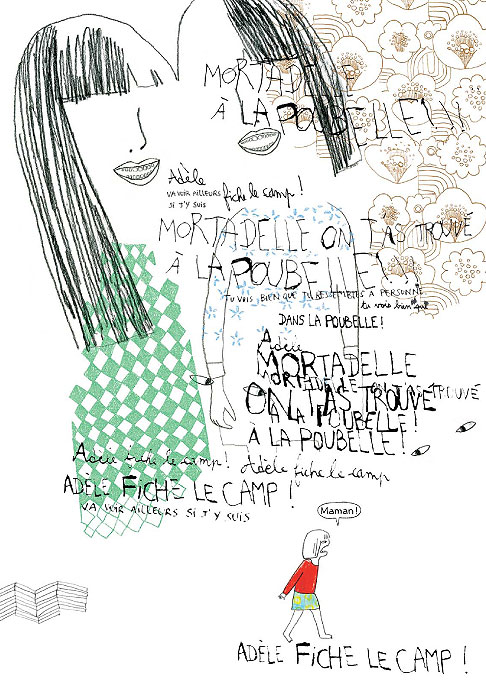 MORTADELLE
À LA POUBELLE !!!
Adèle
VA VOIR AILLEURS fiche le camp !
SI T'Y SUIS
MORTADELLE ON T'AS TROUVÉ
À LA POUBELLE !
TU VOIS BIEN QUE TU RESSEMBLES À PERSONNE
tu vois bien que
DANS LA POUBELLE !
Adèle
MORTADELLE
MORTADELLE ON T'AS TROUVÉ
ON T'AS TROUVÉ
À LA POUBELLE !
À LA POUBELLE !
Adèle fiche le camp ! Adèle fiche le camp
ADÈLE FICHE LE CAMP !
VA VOIR AILLEURS SI T'Y SUIS
Maman !
ADÈLE FICHE LE CAMP !